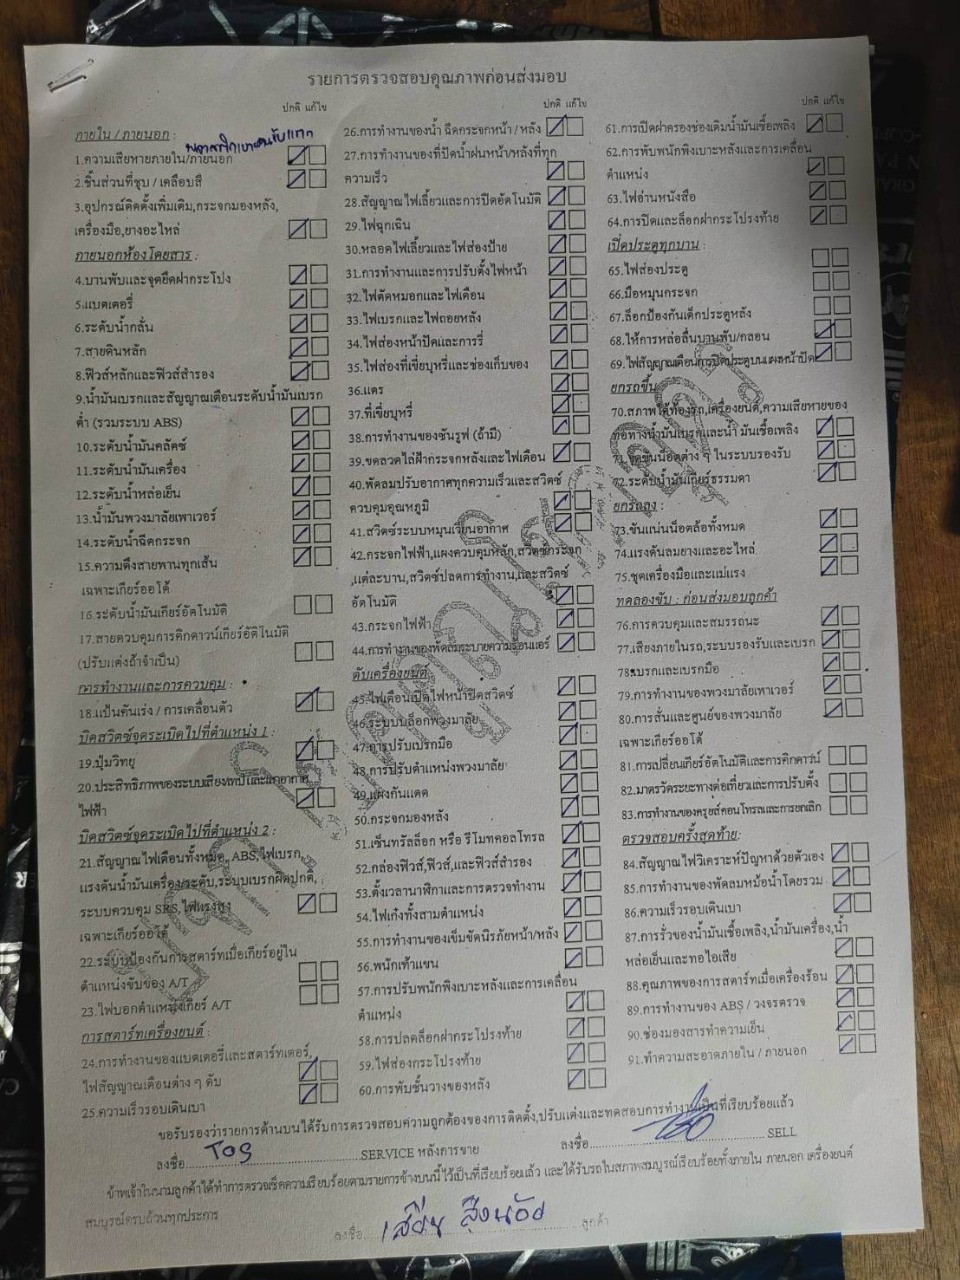 รายการตรวจสอบคุณภาพก่อนส่งมอบ
ปกติ แก้ไข
ภายใน / ภายนอก :
1.ความเสียหายภายใน/ภายนอก
2.ชิ้นส่วนที่ชุบ / เคลือบสี
3.อุปกรณ์ติดตั้งเพิ่มเติม,กระจกมองหลัง,
เครื่องมือ,ยางอะไหล่
ภายนอกห้องโดยสาร :
4.บานพับและจุดยึดฝากระโปง
5.แบตเตอรี่
6.ระดับน้ำกลั่น
7.สายดินหลัก
8.ฟิวส์หลักและฟิวส์สำรอง
9.น้ำมันเบรกและสัญญาณเตือนระดับน้ำมันเบรก
ต่ำ (รวมระบบ ABS)
10.ระดับน้ำมันคลัตช์
11.ระดับน้ำมันเครื่อง
12.ระดับน้ำหล่อเย็น
13.น้ำมันพวงมาลัยเพาเวอร์
14.ระดับน้ำฉีดกระจก
15.ความตึงสายพานทุกเส้น
เฉพาะเกียร์ออโต้
16.ระดับน้ำมันเกียร์อัตโนมัติ
17.สายควบคุมการคิกดาวน์เกียร์อัตโนมัติ
(ปรับแต่งถ้าจำเป็น)
การทำงานและการควบคุม :
18.แป้นคันเร่ง / การเคลื่อนตัว
บิดสวิตซ์จุดระเบิดไปที่ตำแหน่ง 1 :
19.ปุ่มวิทยุ
20.ประสิทธิภาพของระบบเสียงเทปและเสาอากาศ
ไฟฟ้า
บิดสวิตซ์จุดระเบิดไปที่ตำแหน่ง 2 :
21.สัญญาณไฟเตือนทั้งหมด, ABS,ไฟเบรก,
แรงดันน้ำมันเครื่อง/ระดับ,ระบบเบรกผิดปกติ,
ระบบควบคุม SRS,ไฟแรงสูง
เฉพาะเกียร์ออโต้
22.ระบบป้องกันการสตาร์ทเมื่อเกียร์อยู่ใน
ตำแหน่งขับของ A/T
23.ไฟบอกตำแหน่งเกียร์ A/T
การสตาร์ทเครื่องยนต์ :
24.การทำงานของแบตเตอรี่และสตาร์ทเตอร์,
ไฟสัญญาณเตือนต่าง ๆ ดับ
25.ความเร็วรอบเดินเบา
ปกติ แก้ไข
26.การทำงานของน้ำ ฉีดกระจกหน้า / หลัง
27.การทำงานของที่ปัดน้ำฝนหน้า/หลังที่ทุก
ความเร็ว
28.สัญญาณไฟเลี้ยวและการปิดอัตโนมัติ
29.ไฟฉุกเฉิน
30.หลอดไฟเลี้ยวและไฟส่องป้าย
31.การทำงานและการปรับตั้งไฟหน้า
32.ไฟตัดหมอกและไฟเตือน
33.ไฟเบรกและไฟถอยหลัง
34.ไฟส่องหน้าปัดและการรี่
35.ไฟส่องที่เขี่ยบุหรี่และช่องเก็บของ
36.แตร
37.ที่เขี่ยบุหรี่
38.การทำงานของซันรูฟ (ถ้ามี)
39.ขดลวดไล่ฝ้ากระจกหลังและไฟเตือน
40.พัดลมปรับอากาศทุกความเร็วและสวิตซ์
ควบคุมอุณหภูมิ
41.สวิตซ์ระบบหมุนเวียนอากาศ
42.กระจกไฟฟ้า,แผงควบคุมหลัก,สวิตซ์กระจก
,แต่ละบาน,สวิตซ์ปลดการทำงาน,และสวิตซ์
อัตโนมัติ
43.กระจกไฟฟ้า
44.การทำงานของพัดลมระบายความร้อนแอร์
ดับเครื่องยนต์
45.ไฟเตือนเปิดไฟหน้าปิดสวิตซ์
46.ระบบบล็อกพวงมาลัย
47.การปรับเบรกมือ
48.การปรับตำแหน่งพวงมาลัย
49.แผงกันแดด
50.กระจกมองหลัง
51.เซ็นทรัลล็อก หรือ รีโมทคอลโทรล
52.กล่องฟิวส์,ฟิวส์,และฟิวส์สำรอง
53.ตั้งเวลานาฬิกาและการตรวจทำงาน
54.ไฟเก๋งทั้งสามตำแหน่ง
55.การทำงานของเข็มขัดนิรภัยหน้า/หลัง
56.พนักเท้าแขน
57.การปรับพนักพิงเบาะหลังและการเคลื่อน
ตำแหน่ง
58.การปลดล็อกฝากระโปรงท้าย
59.ไฟส่องกระโปรงท้าย
60.การพับชั้นวางของหลัง
ปกติ แก้ไข
61.การเปิดฝาครองช่องเติมน้ำมันเชื้อเพลิง
62.การพับพนักพิงเบาะหลังและการเคลื่อน
ตำแหน่ง
63.ไฟอ่านหนังสือ
64.การปิดและล็อกฝากระโปรงท้าย
เปิดประตูทุกบาน :
65.ไฟส่องประตู
66.มือหมุนกระจก
67.ล็อกป้องกันเด็กประตูหลัง
68.ให้การหล่อลื่นบานพับ/กลอน
69.ไฟสัญญาณเตือนการปิดประตูบนแผลหน้าปัด
ยกรถขึ้น
70.สภาพใต้ท้องรถ,เครื่องยนต์,ความเสียหายของ
ท่อทางน้ำมันเบรกและน้ำ มันเชื้อเพลิง
71.จุดขันน็อตต่าง ๆ ในระบบรองรับ
72.ระดับน้ำมันเกียร์ธรรมดา
ยกรถลง :
73.ขันแน่นน็อตล้อทั้งหมด
74.แรงดันลมยางและอะไหล่
75.ชุดเครื่องมือและแม่แรง
ทดลองขับ : ก่อนส่งมอบลูกค้า
76.การควบคุมและสมรรถนะ
77.เสียงภายในรถ,ระบบรองรับและเบรก
78.เบรกและเบรกมือ
79.การทำงานของพวงมาลัยเพาเวอร์
80.การสั่นและศูนย์ของพวงมาลัย
เฉพาะเกียร์ออโต้
81.การเปลี่ยนเกียร์อัตโนมัติและการคิกดาวน์
82.มาตรวัดระยะทางต่อเที่ยวและการปรับตั้ง
83.การทำงานของครุยส์คอนโทรลและการยกเลิก
ตรวจสอบครั้งสุดท้าย:
84.สัญญาณไฟวิเคราะห์ปัญหาด้วยตัวเอง
85.การทำงานของพัดลมหม้อน้ำโดยรวม
86.ความเร็วรอบเดินเบา
87.การรั่วของน้ำมันเชื้อเพลิง,น้ำมันเครื่อง,น้ำ
หล่อเย็นและทอไอเสีย
88.คุณภาพของการสตาร์ทเมื่อเครื่องร้อน
89.การทำงานของ ABS / วงจรตรวจ
90.ช่องมองสารทำความเย็น
91.ทำความสะอาดภายใน / ภายนอก
ขอรับรองว่ารายการด้านบนได้รับการตรวจสอบความถูกต้องของการติดตั้ง,ปรับแต่งและทดสอบการทำงานเป็นที่เรียบร้อยแล้ว
ลงชื่อ TOS SERVICE หลังการขาย ลงชื่อ SELL
ข้าพเจ้าในนามลูกค้าได้ทำการตรวจเช็คความเรียบร้อยตามรายการข้างบนนี้ ไว้เป็นที่เรียบร้อยแล้ว และได้รับรถในสภาพสมบูรณ์เรียบร้อยทั้งภายใน ภายนอก เครื่องยนต์
สมบูรณ์ครบถ้วนทุกประการ
ลงชื่อ ลูกค้า